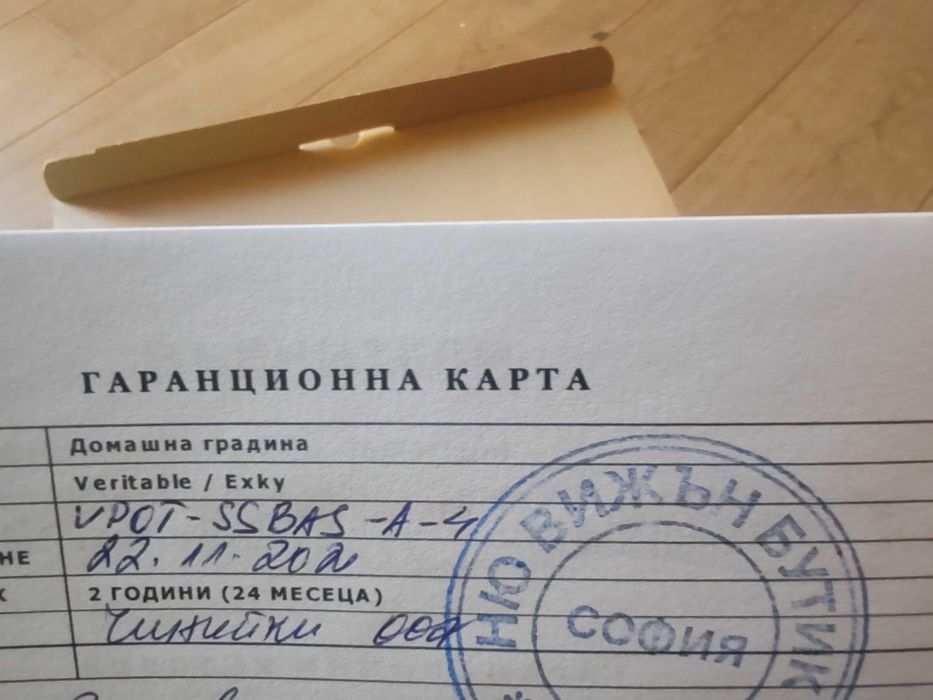 ГАРАНЦИОННА КАРТА
Домашна градина
Veritable / Exky
VPOT-SSBAS-A-4
НЕ 22.11.202
К 2 ГОДИНИ (24 МЕСЕЦА)
ООД
НЮ ВИЖЪН БУТИК
СОФИЯ